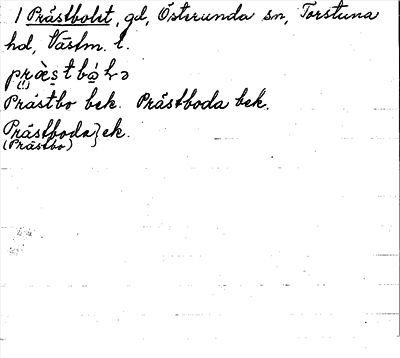 1 Prästbolet, gd, Österunda sn, Torstuna
hd, Västm. l.
Prästbo bek. Prästboda bek.
Prästboda}ek.
(Prästbo)